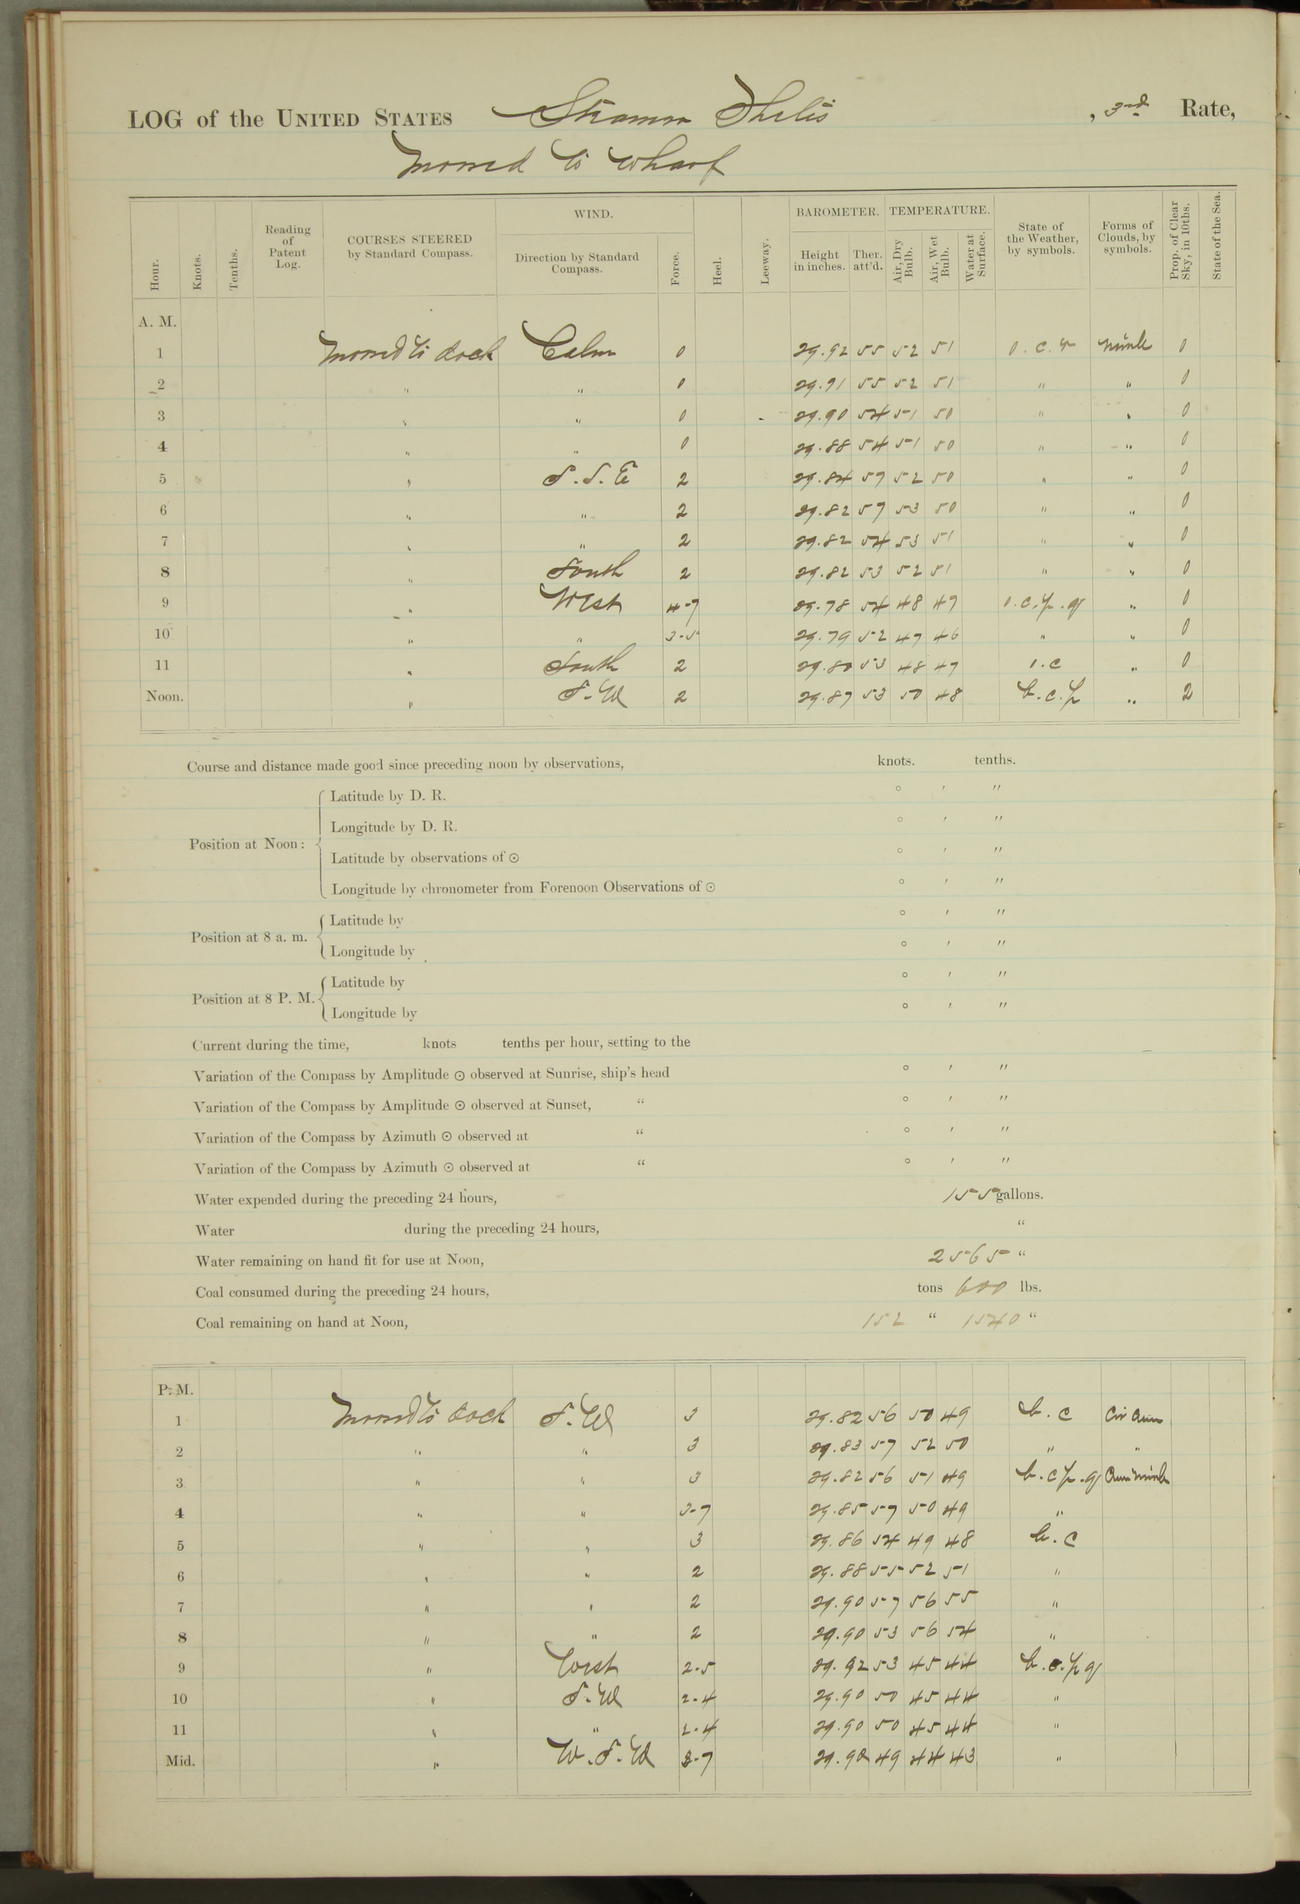 LOG of the UNITED STATES Steamer Thetis, 3rd Rate,
Moored to Wharf
Hour. Knots. Tenths. Reading of Patent Log. COURSES STEERED by Standard Compass. WIND. Direction by Standard Compass. Force. Heel. Leeway. BAROMETER. Height in inches. Ther. att'd. TEMPERATURE. Air, Dry Bulb. Air, Wet Bulb. Water at Surface. State of the Weather, by symbols. Forms of Clouds, by symbols. Prop. of Clear Sky, in 10ths. State of the Sea.
A. M.
1 Moored to dock Calm 0 29.92 55 52 51 o.c.r nimb 0
2 " " 0 29.91 55 52 51 " " 0
3 " " 0 29.90 54 51 50 " " 0
4 " " 0 29.88 54 51 50 " " 0
5 " S.S.E 2 29.84 57 52 50 " " 0
6 " " 2 29.82 57 53 50 " " 0
7 " " 2 29.82 54 53 51 " " 0
8 " South 2 29.82 53 52 51 " " 0
9 " West 4-7 29.78 54 48 47 o.c.p.q " 0
10 " " 3-5 29.79 52 47 46 " " 0
11 " South 2 29.80 53 48 47 o.c " 0
Noon. " S.W 2 29.87 53 50 48 b.c.p " 2
Course and distance made good since preceding noon by observations, knots. tenths.
Position at Noon: Latitude by D. R. ° ′ ″
Longitude by D. R. ° ′ ″
Latitude by observations of ☉ ° ′ ″
Longitude by chronometer from Forenoon Observations of ☉ ° ′ ″
Position at 8 a. m. Latitude by ° ′ ″
Longitude by ° ′ ″
Position at 8 P. M. Latitude by ° ′ ″
Longitude by ° ′ ″
Current during the time, knots tenths per hour, setting to the
Variation of the Compass by Amplitude ☉ observed at Sunrise, ship's head ° ′ ″
Variation of the Compass by Amplitude ☉ observed at Sunset, " ° ′ ″
Variation of the Compass by Azimuth ☉ observed at " ° ′ ″
Variation of the Compass by Azimuth ☉ observed at " ° ′ ″
Water expended during the preceding 24 hours, 155 gallons.
Water during the preceding 24 hours, "
Water remaining on hand fit for use at Noon, 2565 "
Coal consumed during the preceding 24 hours, tons 600 lbs.
Coal remaining on hand at Noon, 152 " 1540 "
P. M.
1 Moored to dock S.W 3 29.82 56 50 49 b.c Cir Cum
2 " " 3 29.83 57 52 50 " "
3 " " 3 29.82 56 51 49 b.c.p.q Cum nimb
4 " " 3-7 29.85 57 50 49 "
5 " " 3 29.86 54 49 48 b.c
6 " " 2 29.88 55 52 51 "
7 " " 2 29.90 57 56 55 "
8 " " 2 29.90 53 56 54 "
9 " West 2-5 29.92 53 45 44 b.c.p q
10 " S.W 2-4 29.90 50 45 44 "
11 " " 2-4 29.90 50 45 44 "
Mid. " W.S.W 3-7 29.90 49 44 43 "